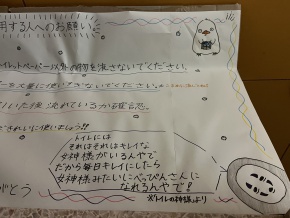 用する人へのお願い
イレットペーパー以外の物を流さないでください。
ーを大量に使いすぎないでください。
いた後流れているか確認。
きれいに使いましょう!!
トイレには
それはそれはキレイな
女神様がいるんやで
だから毎日キレイにしたら
女神様みたいにべっぴんさんに
なれるんやで!
※トイレの神様より
がとう